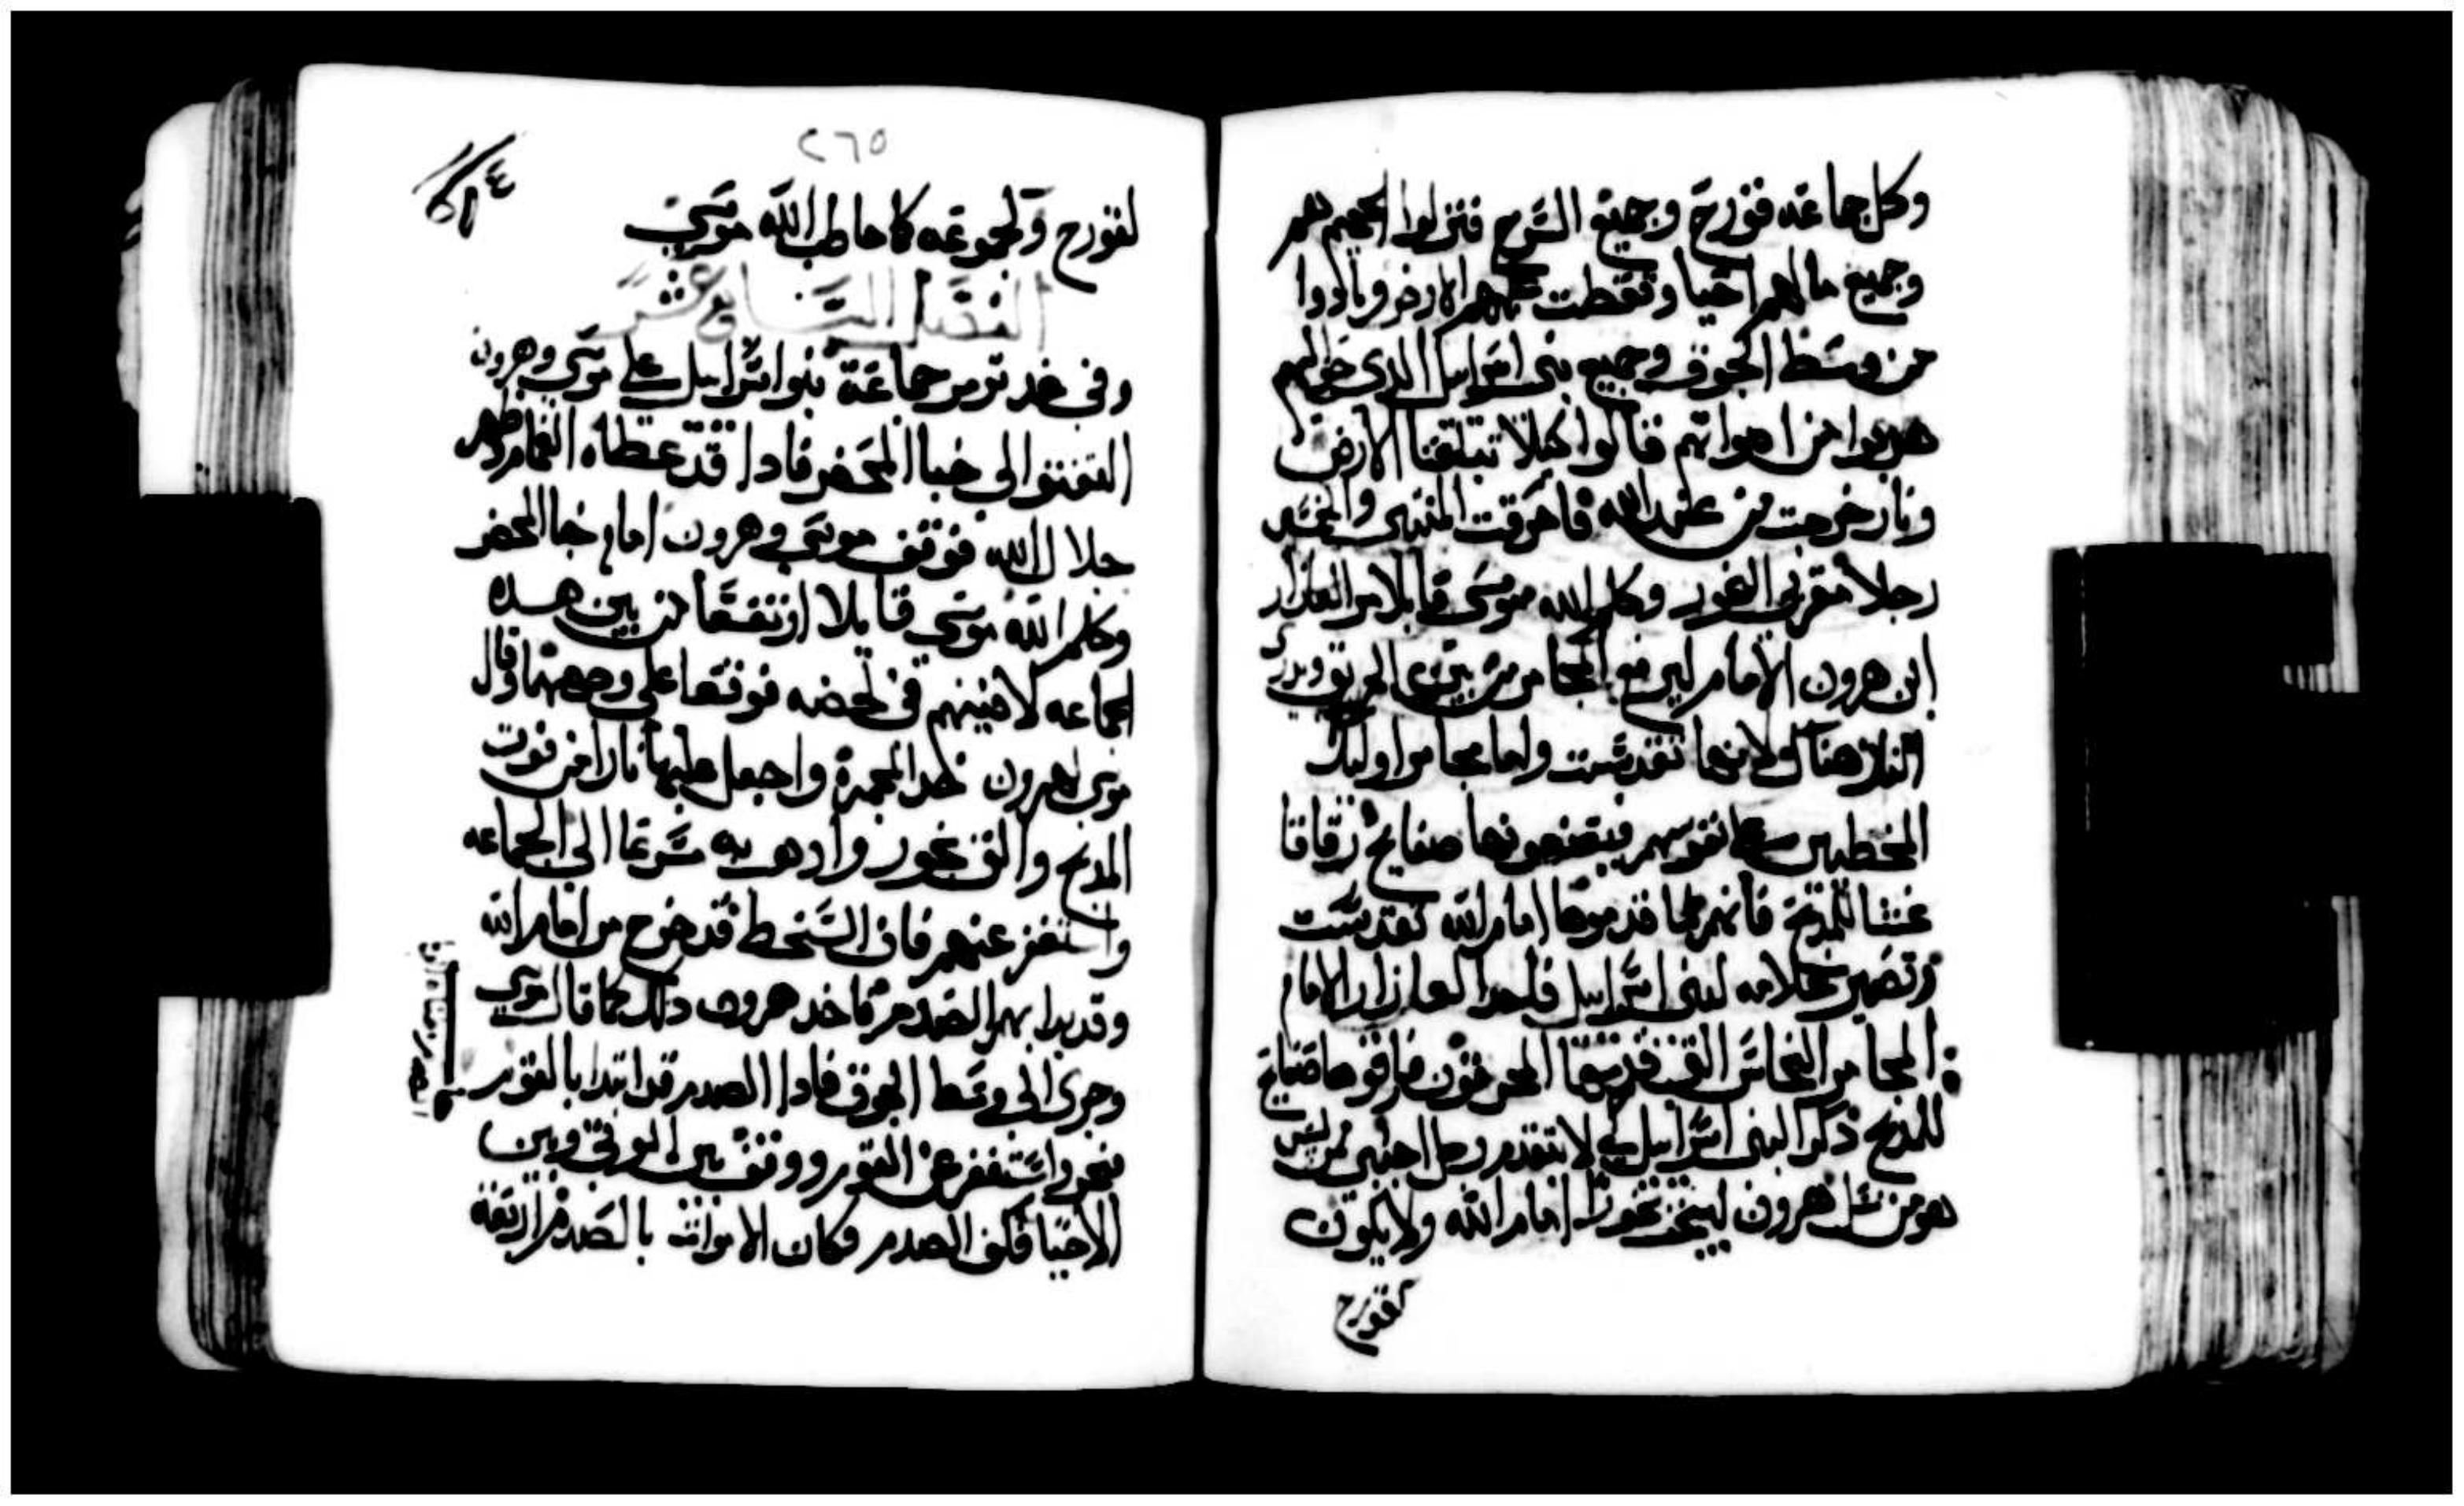 وكل جماعة قورح وجميع السرح فنزلوا الجحيم هم
وجميع ما لهم احيا وتغطت عليهم الارض وبادوا
من وسط الجوق وجميع بني اسراييل الدي حواليهم
هربوا من اصواتهم قالوا كيلا تبتلعنا الارض
ونار خرجت من عند الله فاحرقت المتيى والخمسين
رجلا مقربي البخور وكلم الله موسى قايلا مر العازار
ابن هرون الامام ليرفع المجامر من بين الحريق ويدرى
النار هناك لانها تقدست واما مجامر اوليك
المخطيين على نفوسهم فيصنعونها صفايح رقاقا
غشا للمذبح فانهم لما قدموها امام الله تقدست
وتصير علامه لبني اسراييل فاخد العازار الامام
المجامر النحاس التي قدمها المحرقون فارقوها صفايح
للمذبح ذكرا لبني اسراييل كي لا يتقدم رجل اجنبي من ليس
هو من نسل هرون ليبخر بخورا امام الله ولا يكون
كقورح
٢٦٥
لقورح ولجموعه كما خاطب الله موسى
الفصل السابع عشر
وفي غد تدمر جماعة بنوا اسراييل على موسى وهرون
التفتوا الى خبا المحضر فادا قد غطاه الغمام وظهر
جلال الله فوقف موسى وهرون امام خبا المحضر
وكلم الله موسى قايلا ارتفعا من بين هده
الجماعه لافنيهم في لحضه فوقعا على وجههما وقال
موسى لهرون خد المجمرة واجعل عليها نارا من فوق
المذبح والق بخور وادهب به سرعا الى الجماعه
واستغفر عنهم فان السخط قد خرج من امام الله
وقد بدا بهم الصدم فاخد هرون دلك كما قال موسى
وجرى الى وسط الجوق فادا الصدم قد ابتدا بالقوم
فبخر واستغفر عن القوم ووقف بين الموتى وبين
الاحيا فكف الصدم وكان الاموات بالصدم اربعة